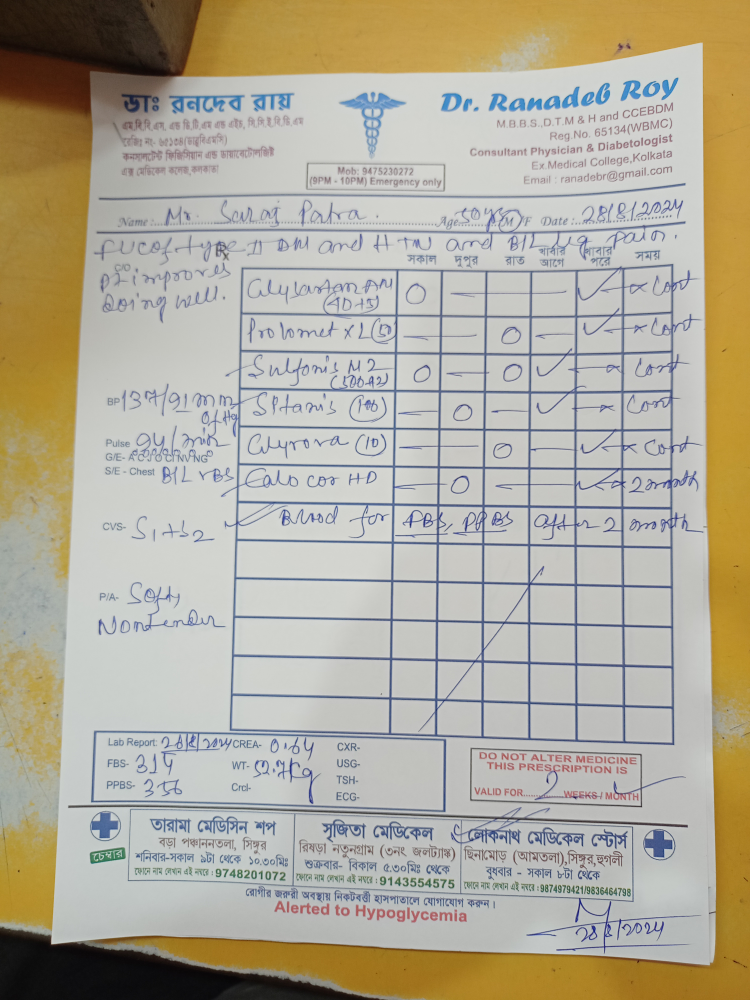 ডাঃ রনদেব রায়
এম.বি.বি.এস. এন্ড ডি.টি.এম এন্ড এইচ, সি.সি.ই.বি.ডি.এম
রেজিঃ নং- ৬৫১৩৪(ডাব্লুবিএমসি)
কনসালটেন্ট ফিজিসিয়ান এন্ড ডায়াবেটোলজিষ্ট
এক্স মেডিকেল কলেজ,কলকাতা
Mob: 9475230272
(9PM - 10PM) Emergency only
Dr. Ranadeb Roy
M.B.B.S.,D.T.M & H and CCEBDM
Reg.No. 65134(WBMC)
Consultant Physician & Diabetologist
Ex.Medical College,Kolkata
Email : ranadebr@gmail.com
Name: Mr. Saraj Patra. Age 50 yrs M/F Date: 28/8/2024
FUC of type II DM and HTN and B/L leg pain.
Rx
সকাল দুপুর রাত খাবার আগে খাবার পরে সময়
C/O
Pt improves
doing well.
(40+5) Cont
Prolomet XL (50) Cont
M2 (500+2) Cont
BP 137/91 mm of Hg
(100) Cont
Pulse 94/min
G/E-
(10) Cont
S/E - Chest B/L VBS
HD 2 month
CVS- S1+S2
Blood for FBS, PPBS after 2 month
P/A- Soft,
Nontender
Lab Report: 26/8/2024 CREA- 0.64 CXR-
FBS- 314 WT- USG-
PPBS- 356 Crcl- TSH-
ECG-
DO NOT ALTER MEDICINE
THIS PRESCRIPTION IS
VALID FOR 2 WEEKS / MONTH
চেম্বার
তারামা মেডিসিন শপ
বড়া পঞ্চাননতলা, সিঙ্গুর
শনিবার-সকাল ৯টা থেকে ১০.৩০মিঃ
ফোনে নাম লেখান এই নম্বরে : 9748201072
সৃজিতা মেডিকেল
রিষড়া নতুনগ্রাম (৩নং জলট্যাঙ্ক)
শুক্রবার- বিকাল ৫.৩০মিঃ থেকে
ফোনে নাম লেখান এই নম্বরে : 9143554575
লোকনাথ মেডিকেল স্টোর্স
ছিনামোড় (আমতলা),সিঙ্গুর,হুগলী
বুধবার - সকাল ৮টা থেকে
ফোনে নাম লেখান এই নম্বরে : 9874979421/9836464798
রোগীর জরুরী অবস্থায় নিকটবর্তী হাসপাতালে যোগাযোগ করুন।
Alerted to Hypoglycemia
28/8/2024